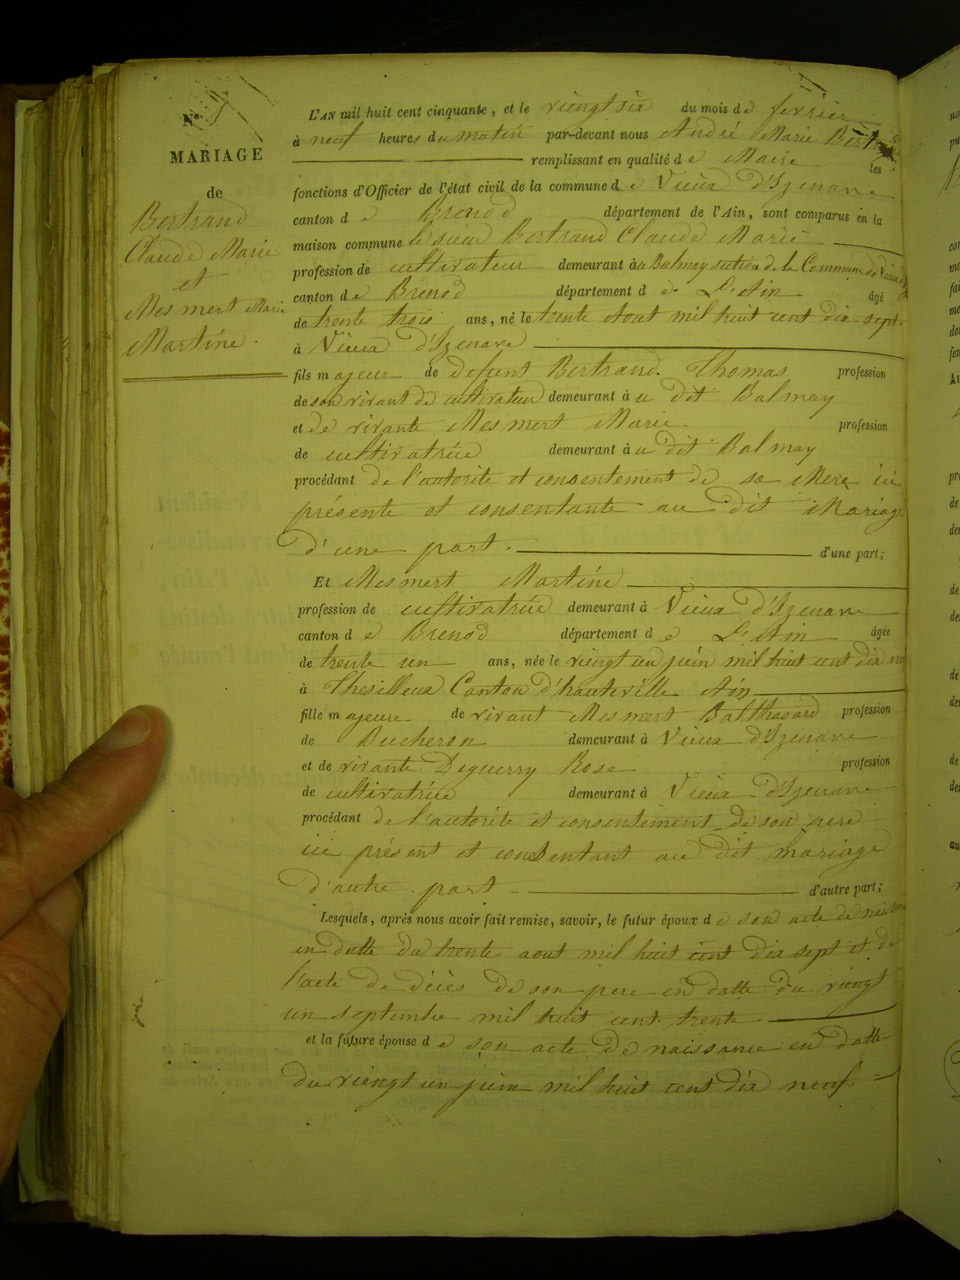 N° 5
MARIAGE
de
Bertrand
Claude Marie
et
Mesmert Marie
Martine.
L'AN mil huit cent cinquante, et le viengt six du mois de fevrier
à neuf heures du matin par-devant nous André Marie Bertrand
remplissant en qualité de Maire les
fonctions d'Officier de l'état civil de la commune de Vieux d'Izenave
canton de Brenod département de l'Ain, sont comparus en la
maison commune le sieur Bertrand Claude Marie
profession de cultivateur demeurant à au Balmay section de la Commune de Vieux d'Iz
canton de Brenod département de L'Ain âgé
de trente trois ans, né le trente Aout mil huit cent dix sept
à Vieux d'Izenave
fils majeur de defunt Bertrand Thomas profession
de son vivant de cultivateur demeurant à u dit Balmay
et de vivante Mesmert Marie profession
de cultivatrice demeurant à u dit Balmay
procédant de l'autorite et consentement de sa Mere ici
présente et consentante au dit Mariage
d'une part. d'une part;
Et Mesmert Martine
profession de cultivatrice demeurant à Vieux d'Izenave
canton de Brenod département de L'Ain âgée
de trente un ans, née le viengt un juin mil huit cent dix neuf
à Thesilleux Canton d'hauteville Ain
fille majeure de vivant Mesmert Balthazard profession
de Bucheron demeurant à Vieux d'Izenave
et de vivante Deguerry Rose profession
de cultivatrice demeurant à Vieux d'Izenave
procédant de l'autorité et consentement de son pere
ici présent et consentant au dit mariage
d'autre part d'autre part;
Lesquels, après nous avoir fait remise, savoir, le futur époux de son acte de naissance
en datte du trente aout mil huit cent dix sept et de
l'acte de décès de son pere en datte du viengt
un septembre mil huit cent trente
et la future épouse de son acte de naissance en datte
du viengt un juin mil huit cent dix neuf